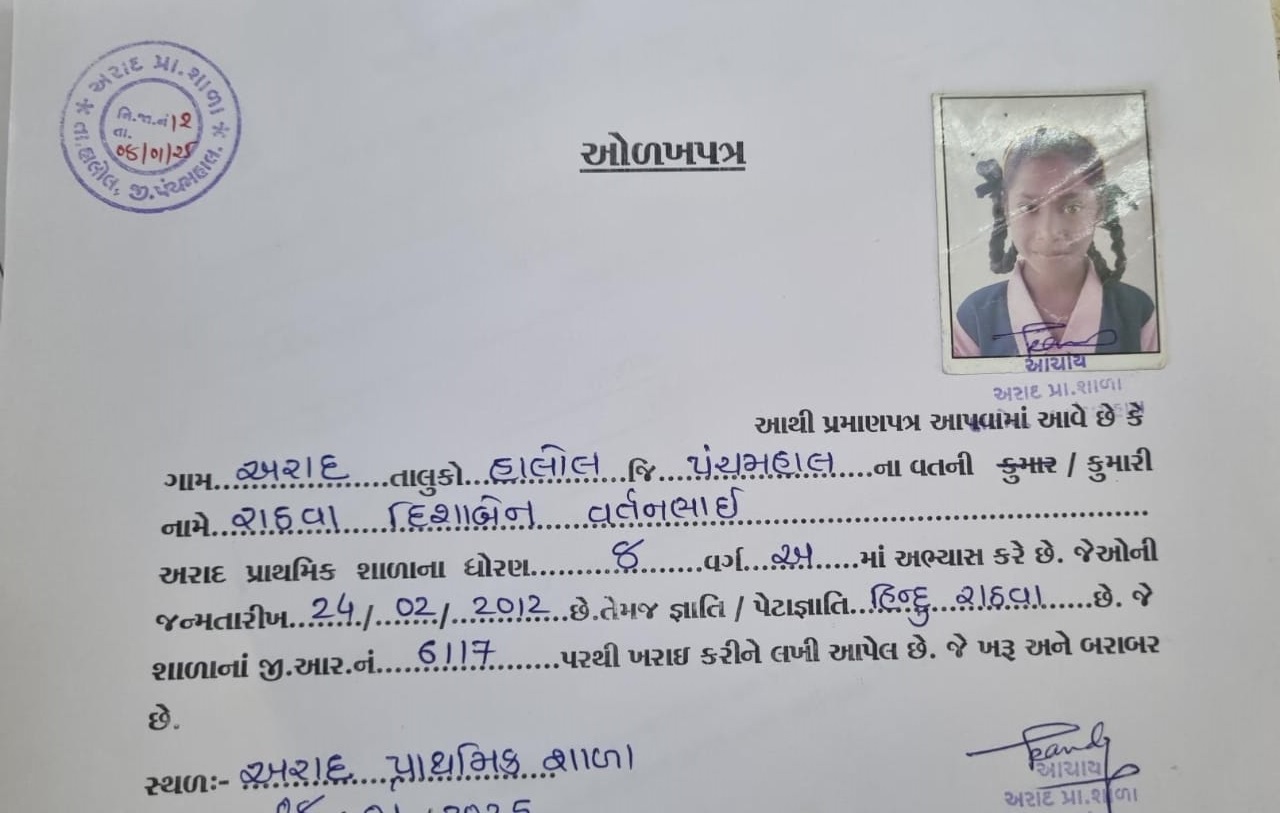 * અરાદ પ્રા.શાળા *
નિ.જા.નં 12
તા. 08/01/25
તા.હાલોલ, જી.પંચમહાલ.
ઓળખપત્ર
આચાર્ય
અરાદ પ્રા.શાળા
આથી પ્રમાણપત્ર આપવામાં આવે છે કે
ગામ...અરાદ...તાલુકો...હાલોલ...જિ...પંચમહાલ...ના વતની કુમાર / કુમારી
નામે...રાઠવા દિશાબેન વર્તનભાઈ...
અરાદ પ્રાથમિક શાળાના ધોરણ...8...વર્ગ...અ...માં અભ્યાસ કરે છે. જેઓની
જન્મતારીખ...24/...02/...2012...છે.તેમજ જ્ઞાતિ / પેટાજ્ઞાતિ...હિન્દુ રાઠવા...છે. જે
શાળાનાં જી.આર.નં....6117...પરથી ખરાઇ કરીને લખી આપેલ છે. જે ખરૂ અને બરાબર
છે.
સ્થળઃ- અરાદ પ્રાથમિક શાળા
આચાર્ય
અરાદ પ્રા.શાળા